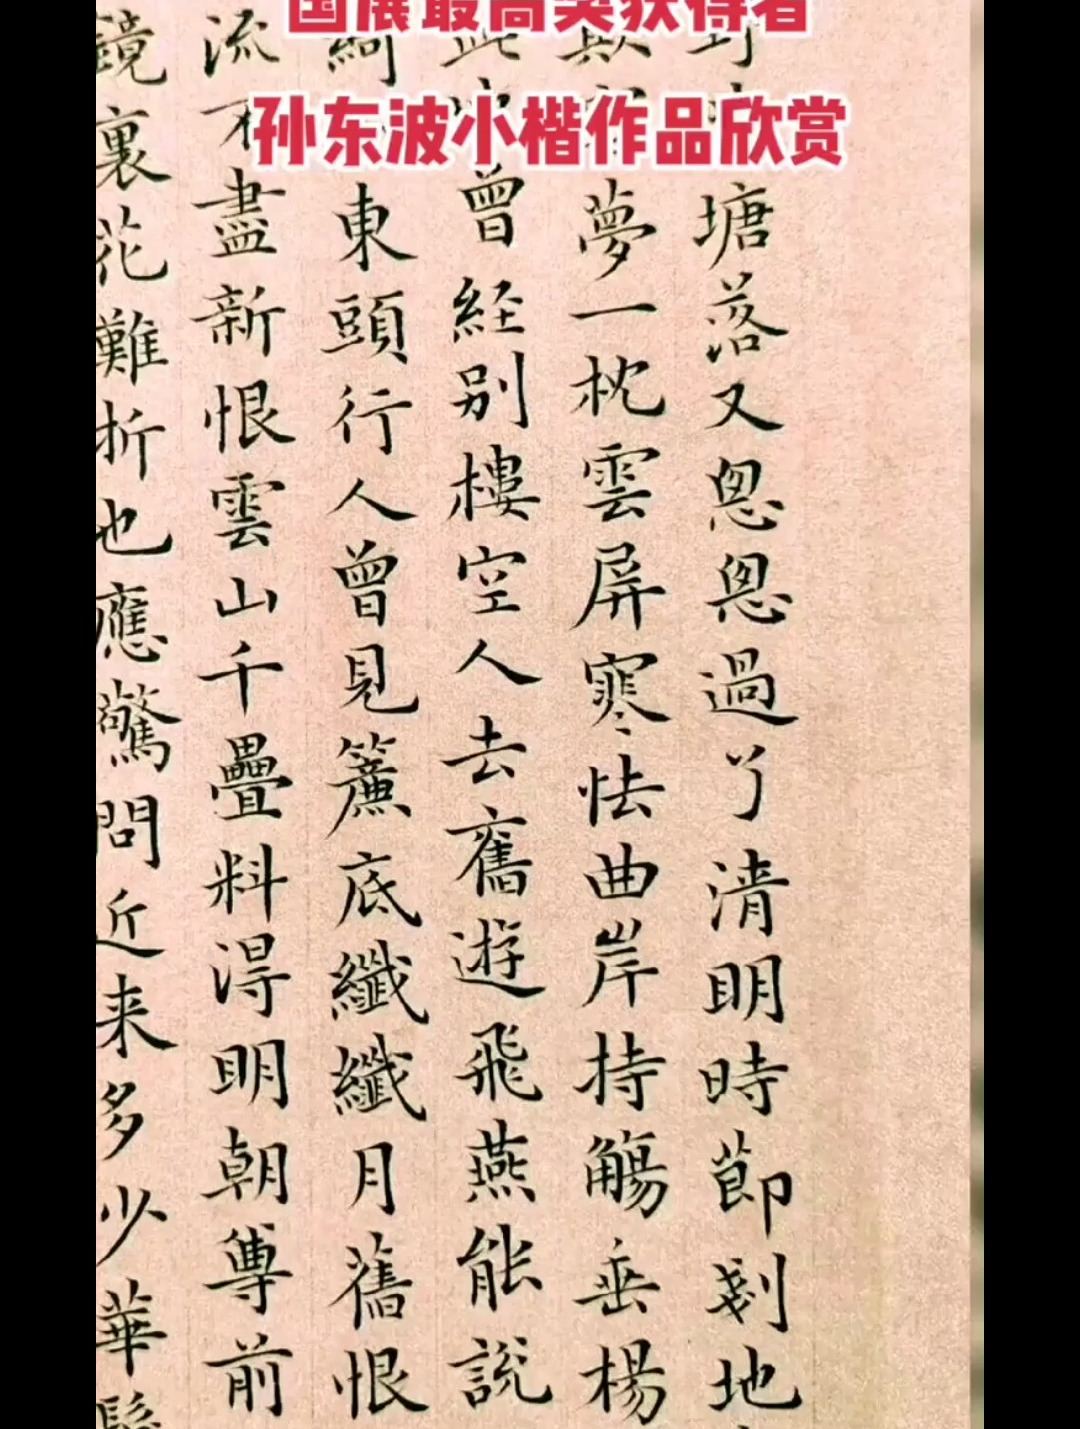 国展最高奖获得者
孙东波小楷作品欣赏
塘落又怱怱過了清明時節剗地
夢一枕雲屏寒怯曲岸持觴垂楊
此地曾経别樓空人去舊遊飛燕能説
東頭行人曾見簾底纖纖月舊恨
流不盡新恨雲山千疊料得明朝尊前
鏡裏花難折也應驚問近来多少華